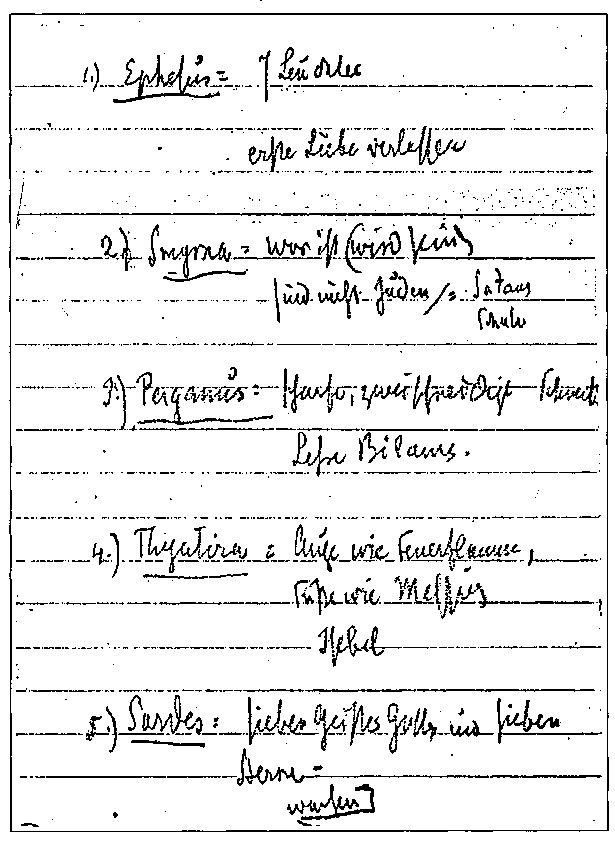 1.) Ephesus = 7 Leuchter
erste Liebe verlassen
2.) Smyrna = war ist (wird) sein
sind nicht Juden /= Satans
Schule
3.) Pergamus = scharfe, zweischneidige Schwert
Lehre Bilams.
4.) Thyatira = Auge wie Feuerflamme,
Füße wie Messing
Isebel
5.) Sardes = sieben Geistes Gottes und sieben
Sterne -